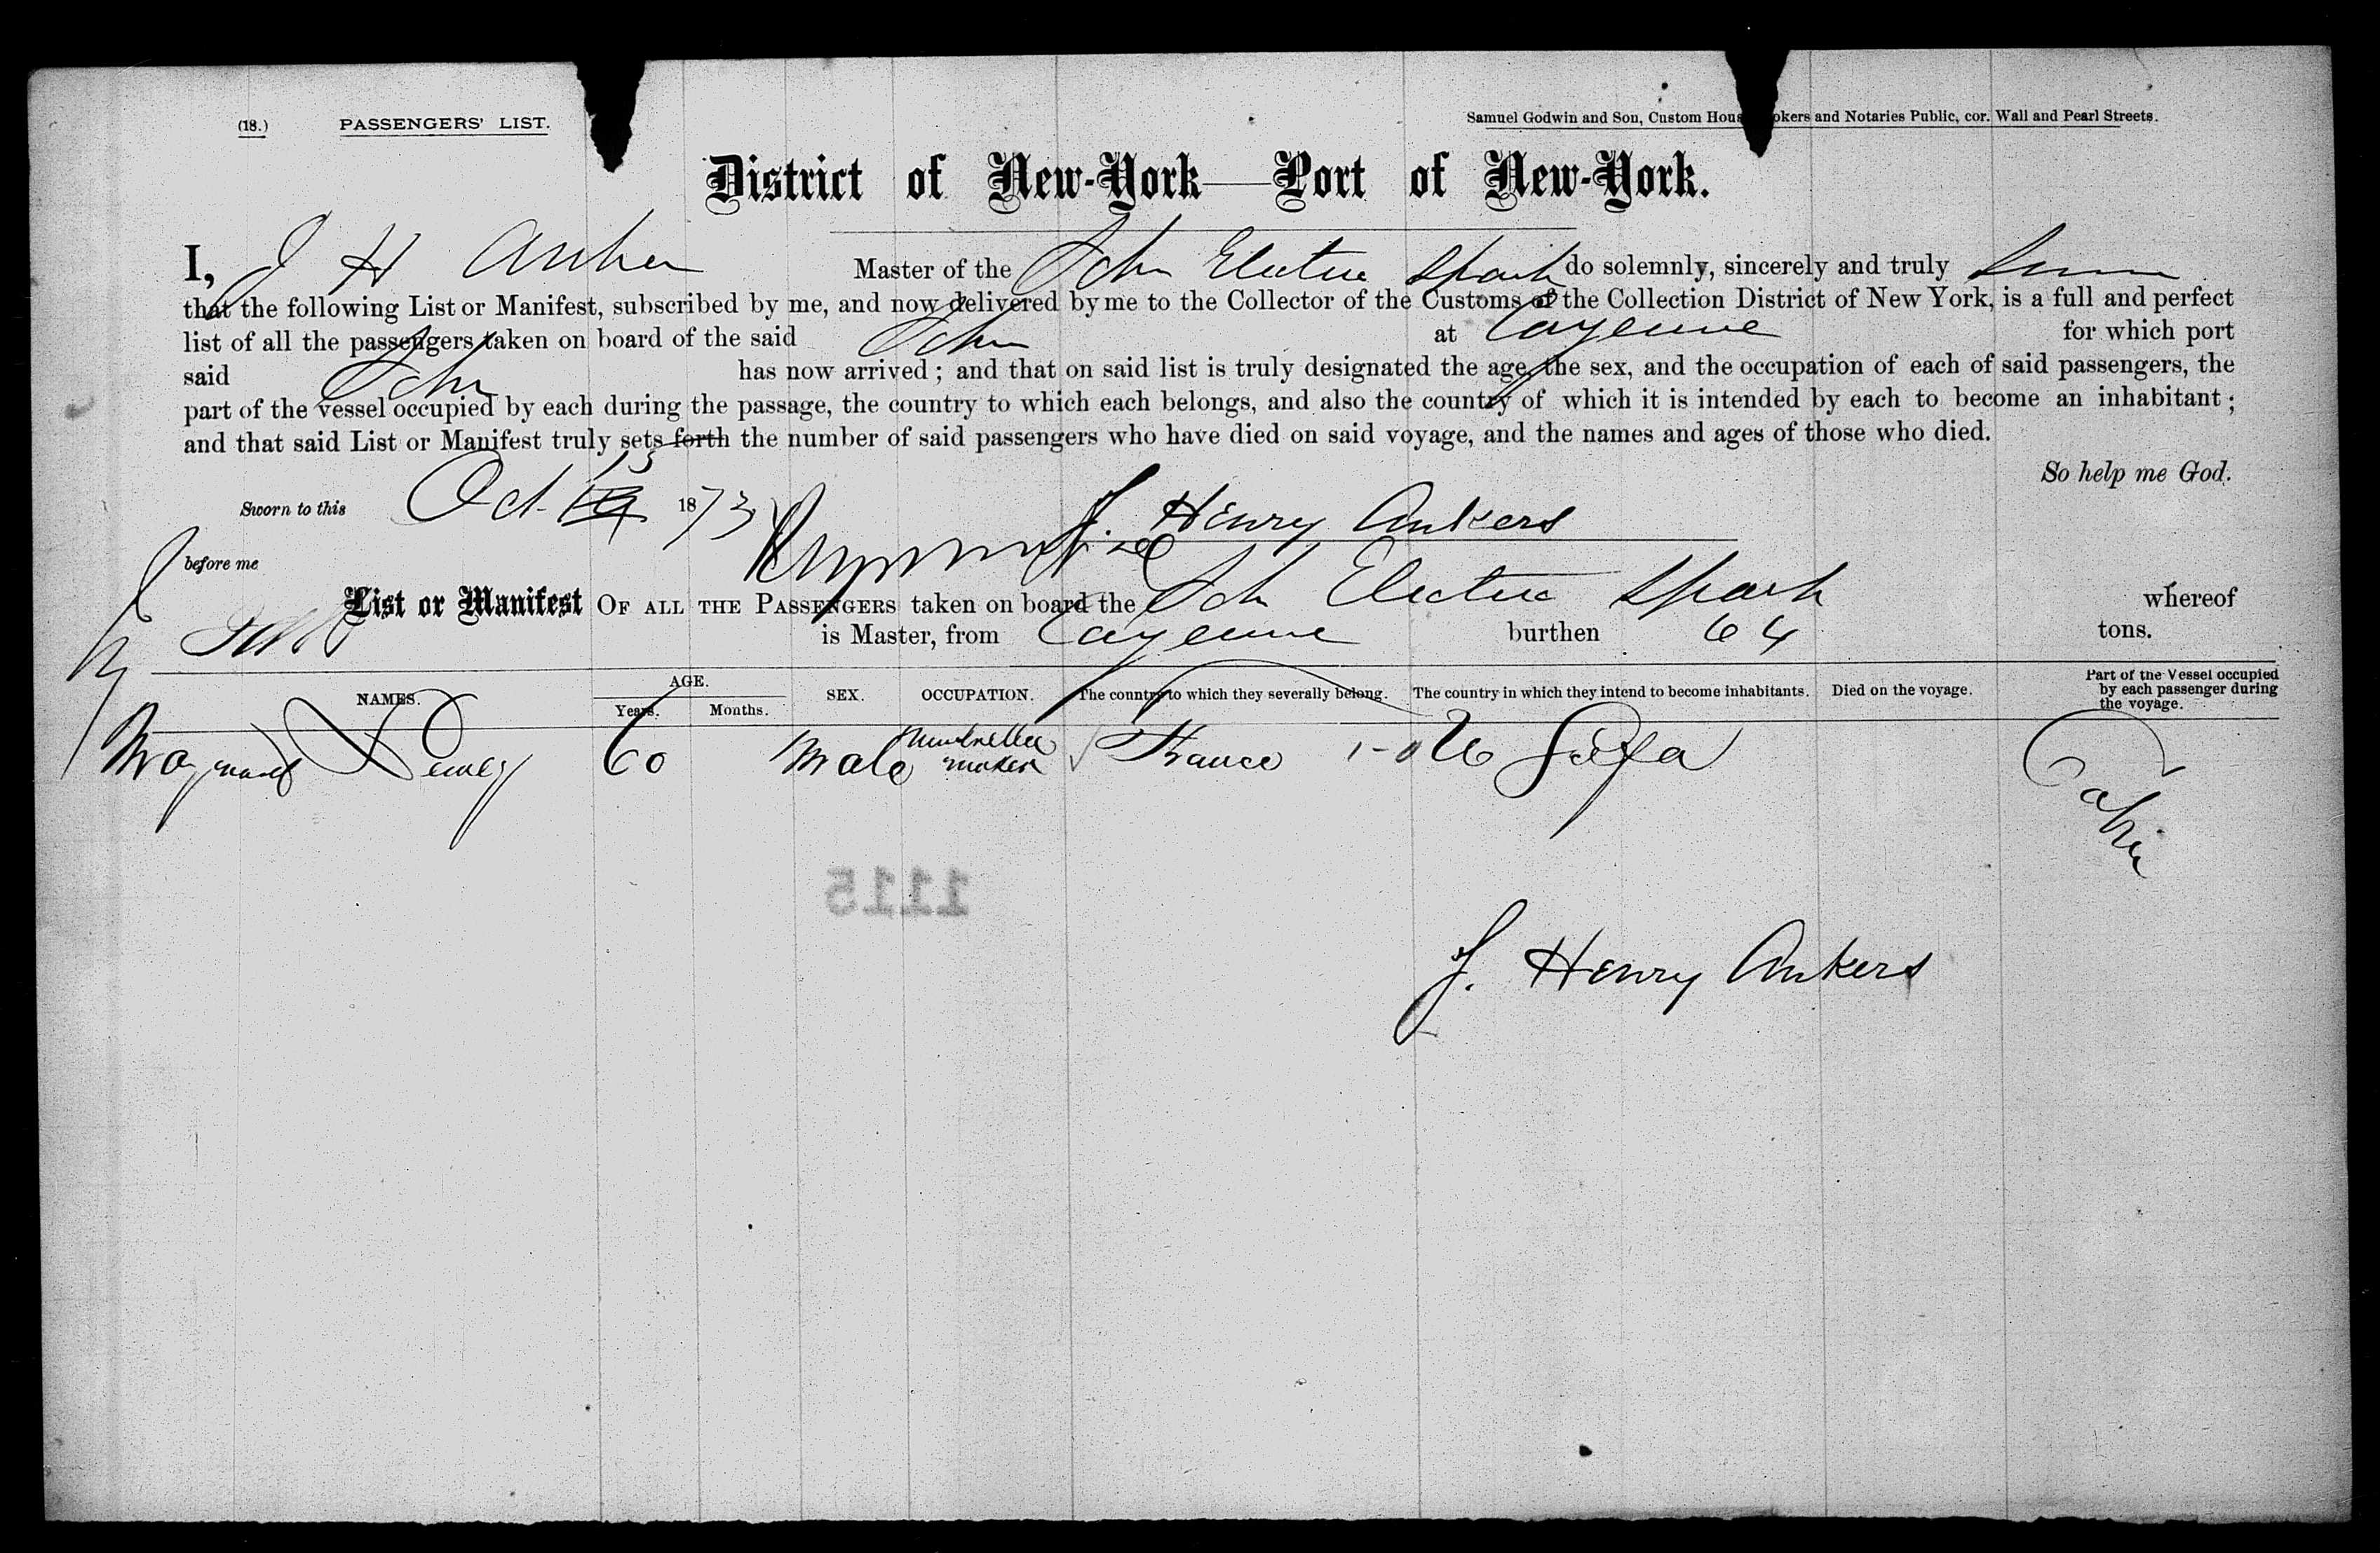 (18.) PASSENGERS' LIST. Samuel Godwin and Son, Custom Hous okers and Notaries Public, cor. Wall and Pearl Streets.
District of New-York—Port of New-York.
I, J H Anker Master of the Schr Electric Spark do solemnly, sincerely and truly Swear
that the following List or Manifest, subscribed by me, and now delivered by me to the Collector of the Customs of the Collection District of New York, is a full and perfect
list of all the passengers taken on board of the said Schr at Cayenne for which port
said Schr has now arrived; and that on said list is truly designated the age, the sex, and the occupation of each of said passengers, the
part of the vessel occupied by each during the passage, the country to which each belongs, and also the country of which it is intended by each to become an inhabitant;
and that said List or Manifest truly sets forth the number of said passengers who have died on said voyage, and the names and ages of those who died.
So help me God.
Sworn to this Oct 15 1873 J. Henry Ankers
before me
List or Manifest OF ALL THE PASSENGERS taken on board the Sch Electric Spark whereof
is Master, from Cayenne burthen 64 tons.
NAMES. AGE. Years. Months. SEX. OCCUPATION. The country to which they severally belong. The country in which they intend to become inhabitants. Died on the voyage. Part of the Vessel occupied by each passenger during the voyage.
60 Male Umbrella maker France U S of a Cabin
1115
J. Henry Ankers